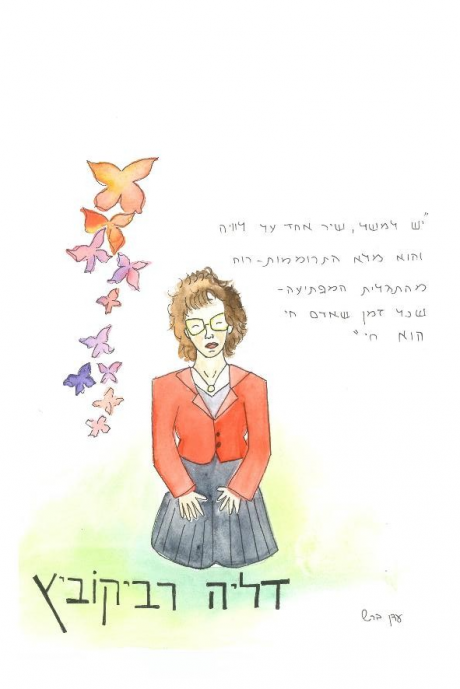 "יש למשל, שיר אחד על לוויה
והוא מלא התרוממות-רוח
מהתגלית המפתיעה-
שכל זמן שאדם חי
הוא חי"
דליה רביקוביץ
עדן ברש